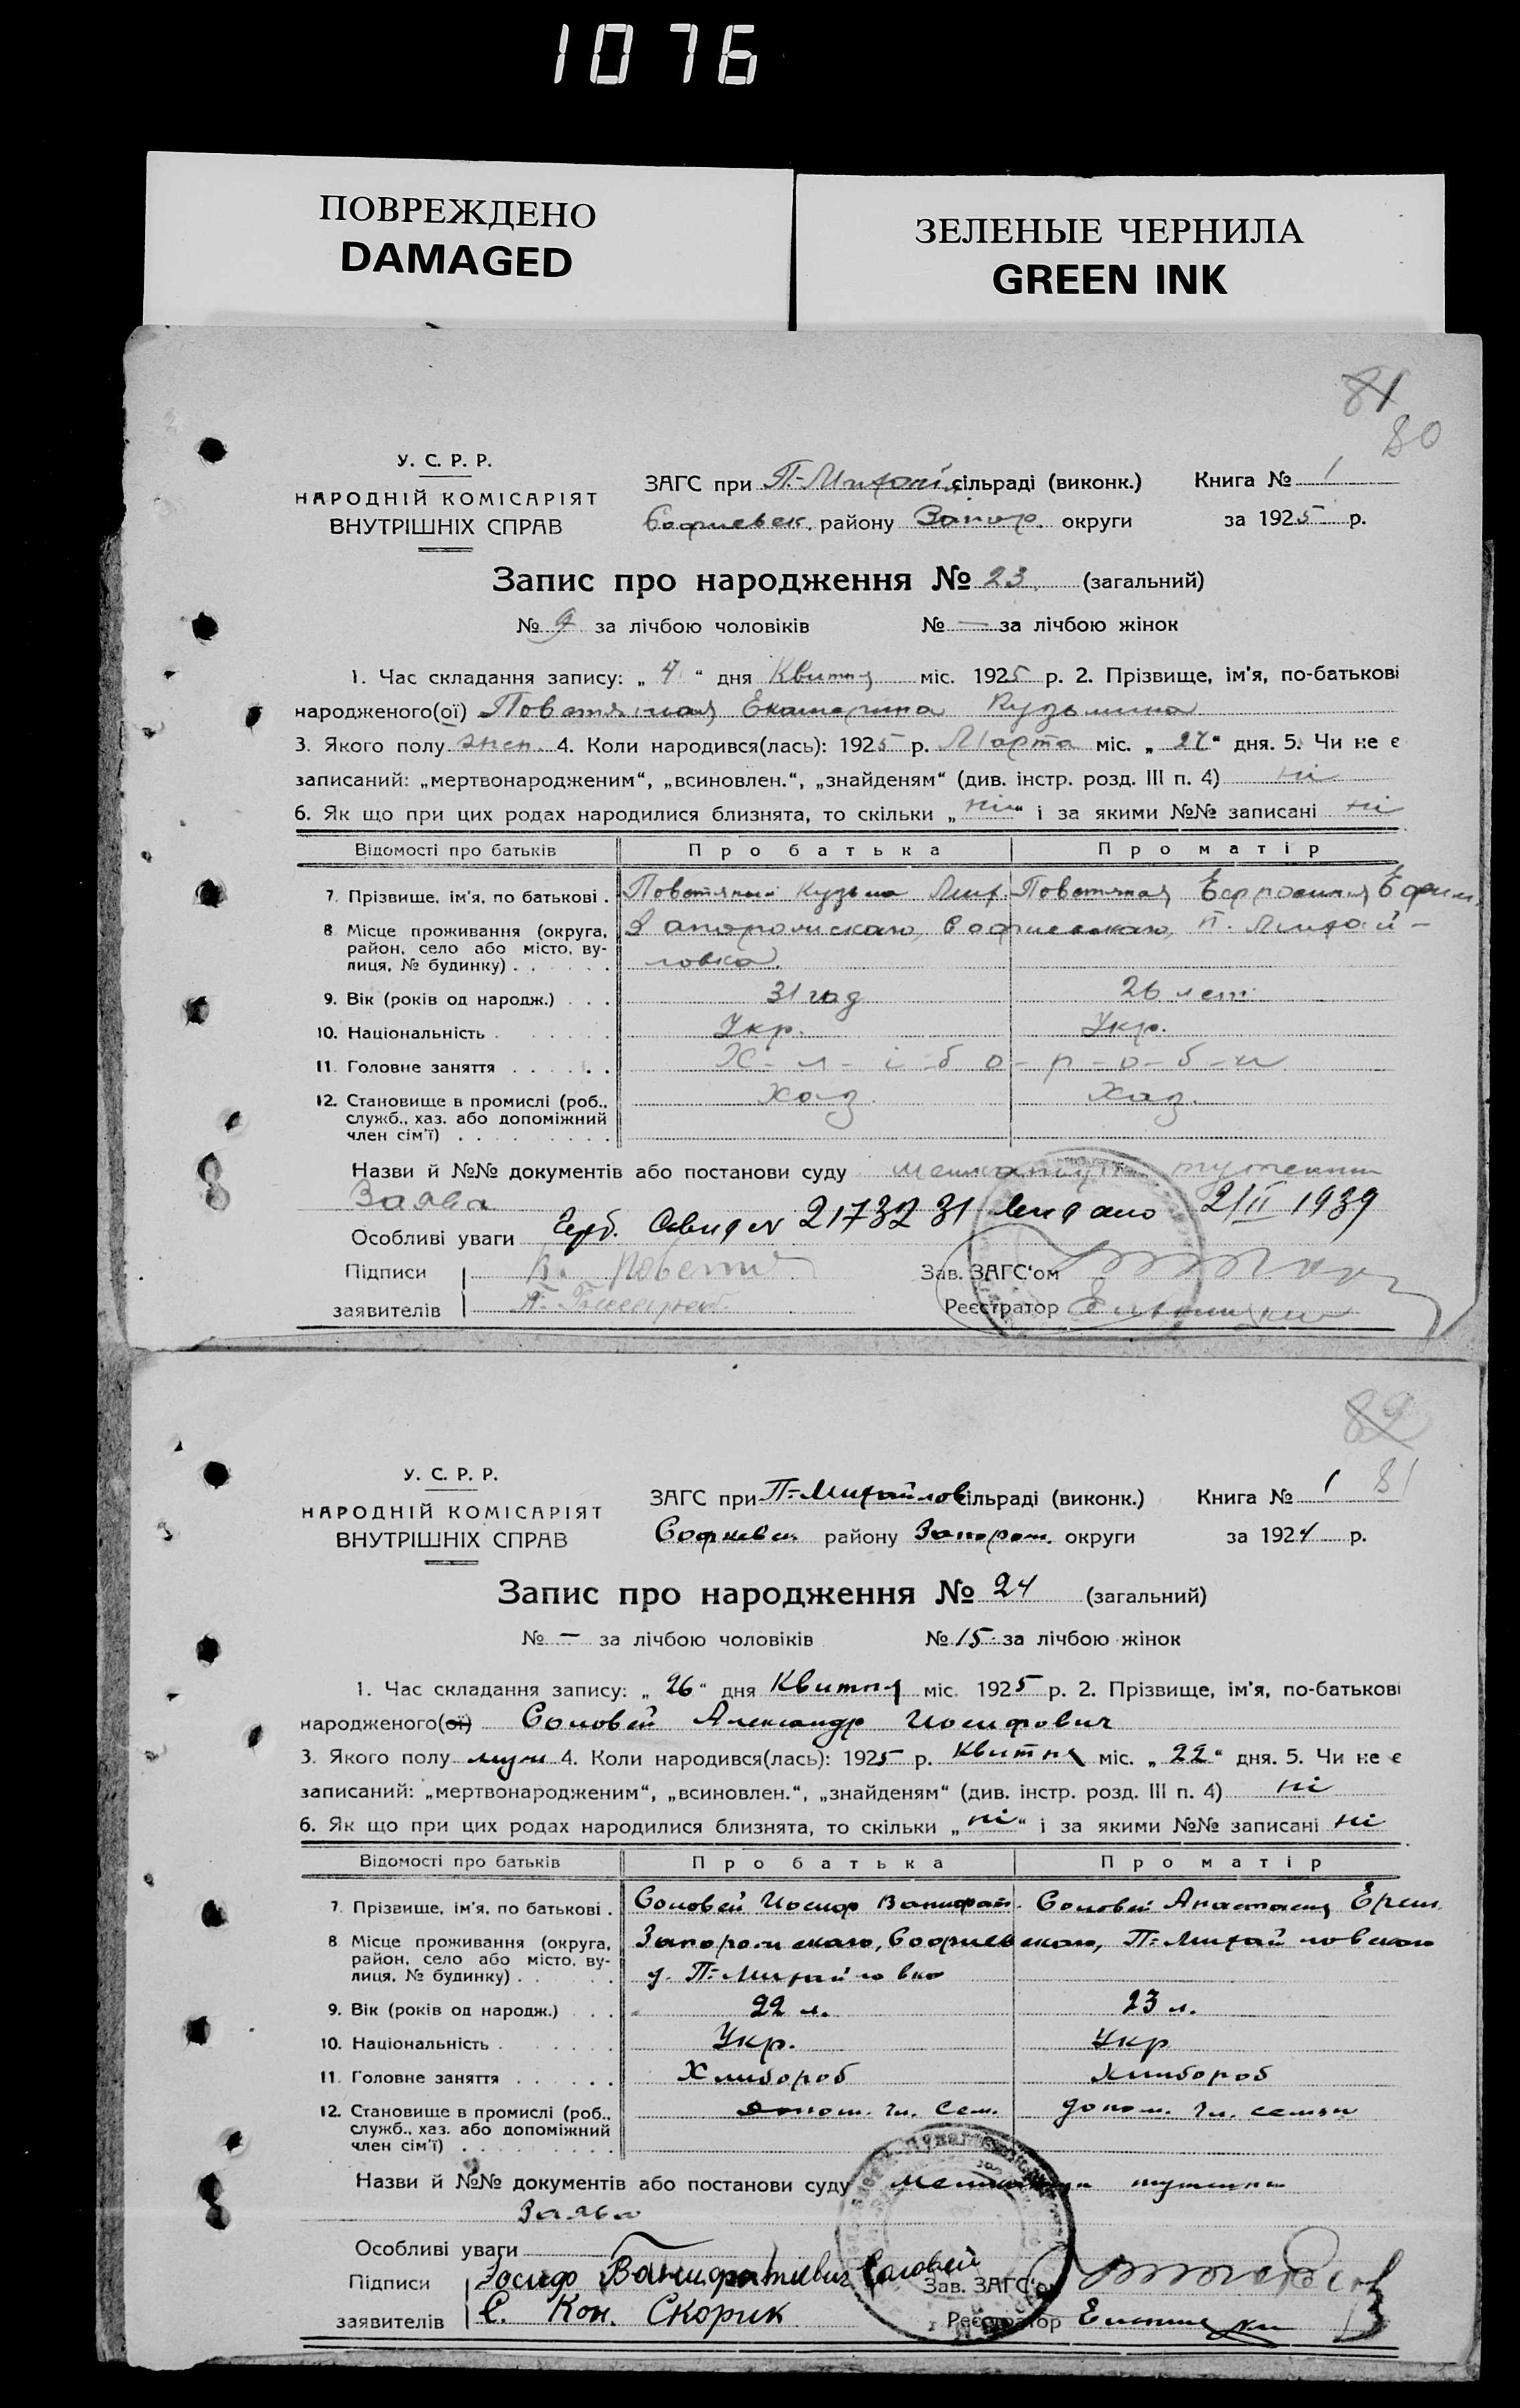 1076
ПОВРЕЖДЕНО
DAMAGED
ЗЕЛЕНЫЕ ЧЕРНИЛА
GREEN INK
81
80
У. С. Р. Р.
НАРОДНІЙ КОМІСАРІЯТ
ВНУТРІШНІХ СПРАВ
ЗАГС при П.-Михайл. сільраді (виконк.)
Софиевск. району Запор. округи
Книга № 1
за 1925 р.
Запис про народження № 23 (загальний)
№ 9 за лічбою чоловіків № — за лічбою жінок
1. Час складання запису: „ 4 “ дня Квитня міс. 1925 р. 2. Прізвище, ім'я, по-батькові
народженого(ої) Повотяная Екатерина Кузьмина
3. Якого полу жен. 4. Коли народився(лась): 1925 р. Марта міс. „ 27 “ дня. 5. Чи не є
записаний: „мертвонародженим“, „всиновлен.“, „знайденям“ (див. інстр. розд. III п. 4) ні
6. Як що при цих родах народилися близнята, то скільки „ ні “ і за якими №№ записані ні
Відомості про батьків Про батька Про матір
7. Прізвище, ім'я, по батькові . Кузьма Мих.
8 Місце проживання (округа, район, село або місто, вулиця, № будинку) . Запорожскаго, Софиевскаго, П. Михай-
ловка.
9. Вік (років од народж.) . . . 31 год 26 лет
10. Національність . Укр. Укр.
11. Головне заняття . Х-л-і-б о-р-о-б-и
12. Становище в промислі (роб., служб., хаз. або допоміжний член сім'ї) . Хаз. Хаз.
Назви й №№ документів або постанови суду мешканці тутешни
Заява
Особливі уваги Герб. Свид № 2173231 видано 2/II 1939
Підписи
заявителів
Зав. ЗАГС'ом
Реєстратор
89
81
У. С. Р. Р.
НАРОДНІЙ КОМІСАРІЯТ
ВНУТРІШНІХ СПРАВ
ЗАГС при П-Михайлов сільраді (виконк.)
Софиевск району Запорож. округи
Книга № 1
за 1924 р.
Запис про народження № 24 (загальний)
№ — за лічбою чоловіків № 15 за лічбою жінок
1. Час складання запису: „ 26 “ дня Квитня міс. 1925 р. 2. Прізвище, ім'я, по-батькові
народженого(ої) Соловей Александр Иосифович
3. Якого полу муж 4. Коли народився(лась): 1925 р. Квитня міс. „ 22 “ дня. 5. Чи не є
записаний: „мертвонародженим“, „всиновлен.“, „знайденям“ (див. інстр. розд. III п. 4) ні
6. Як що при цих родах народилися близнята, то скільки „ ні “ і за якими №№ записані ні
Відомості про батьків Про батька Про матір
7. Прізвище, ім'я, по батькові . Соловей Иосиф Ванифат. Соловей Анастасия
8 Місце проживання (округа, район, село або місто, вулиця, № будинку) . Запорожскаго, Софиевскаго, П-Михайловскаго
д. П-Михайловка
9. Вік (років од народж.) . . . 22 л. 23 л.
10. Національність . Укр. Укр
11. Головне заняття . Хлибороб Хлибороб
12. Становище в промислі (роб., служб., хаз. або допоміжний член сім'ї) . допом. чл. сем. допом. чл. семьи
Назви й №№ документів або постанови суду мешканци тутешни
Заява
Особливі уваги
Підписи Иосиф Ванифатиевич Соловей
заявителів С. Кон. Скорик
Зав. ЗАГС'ом
Реєстратор